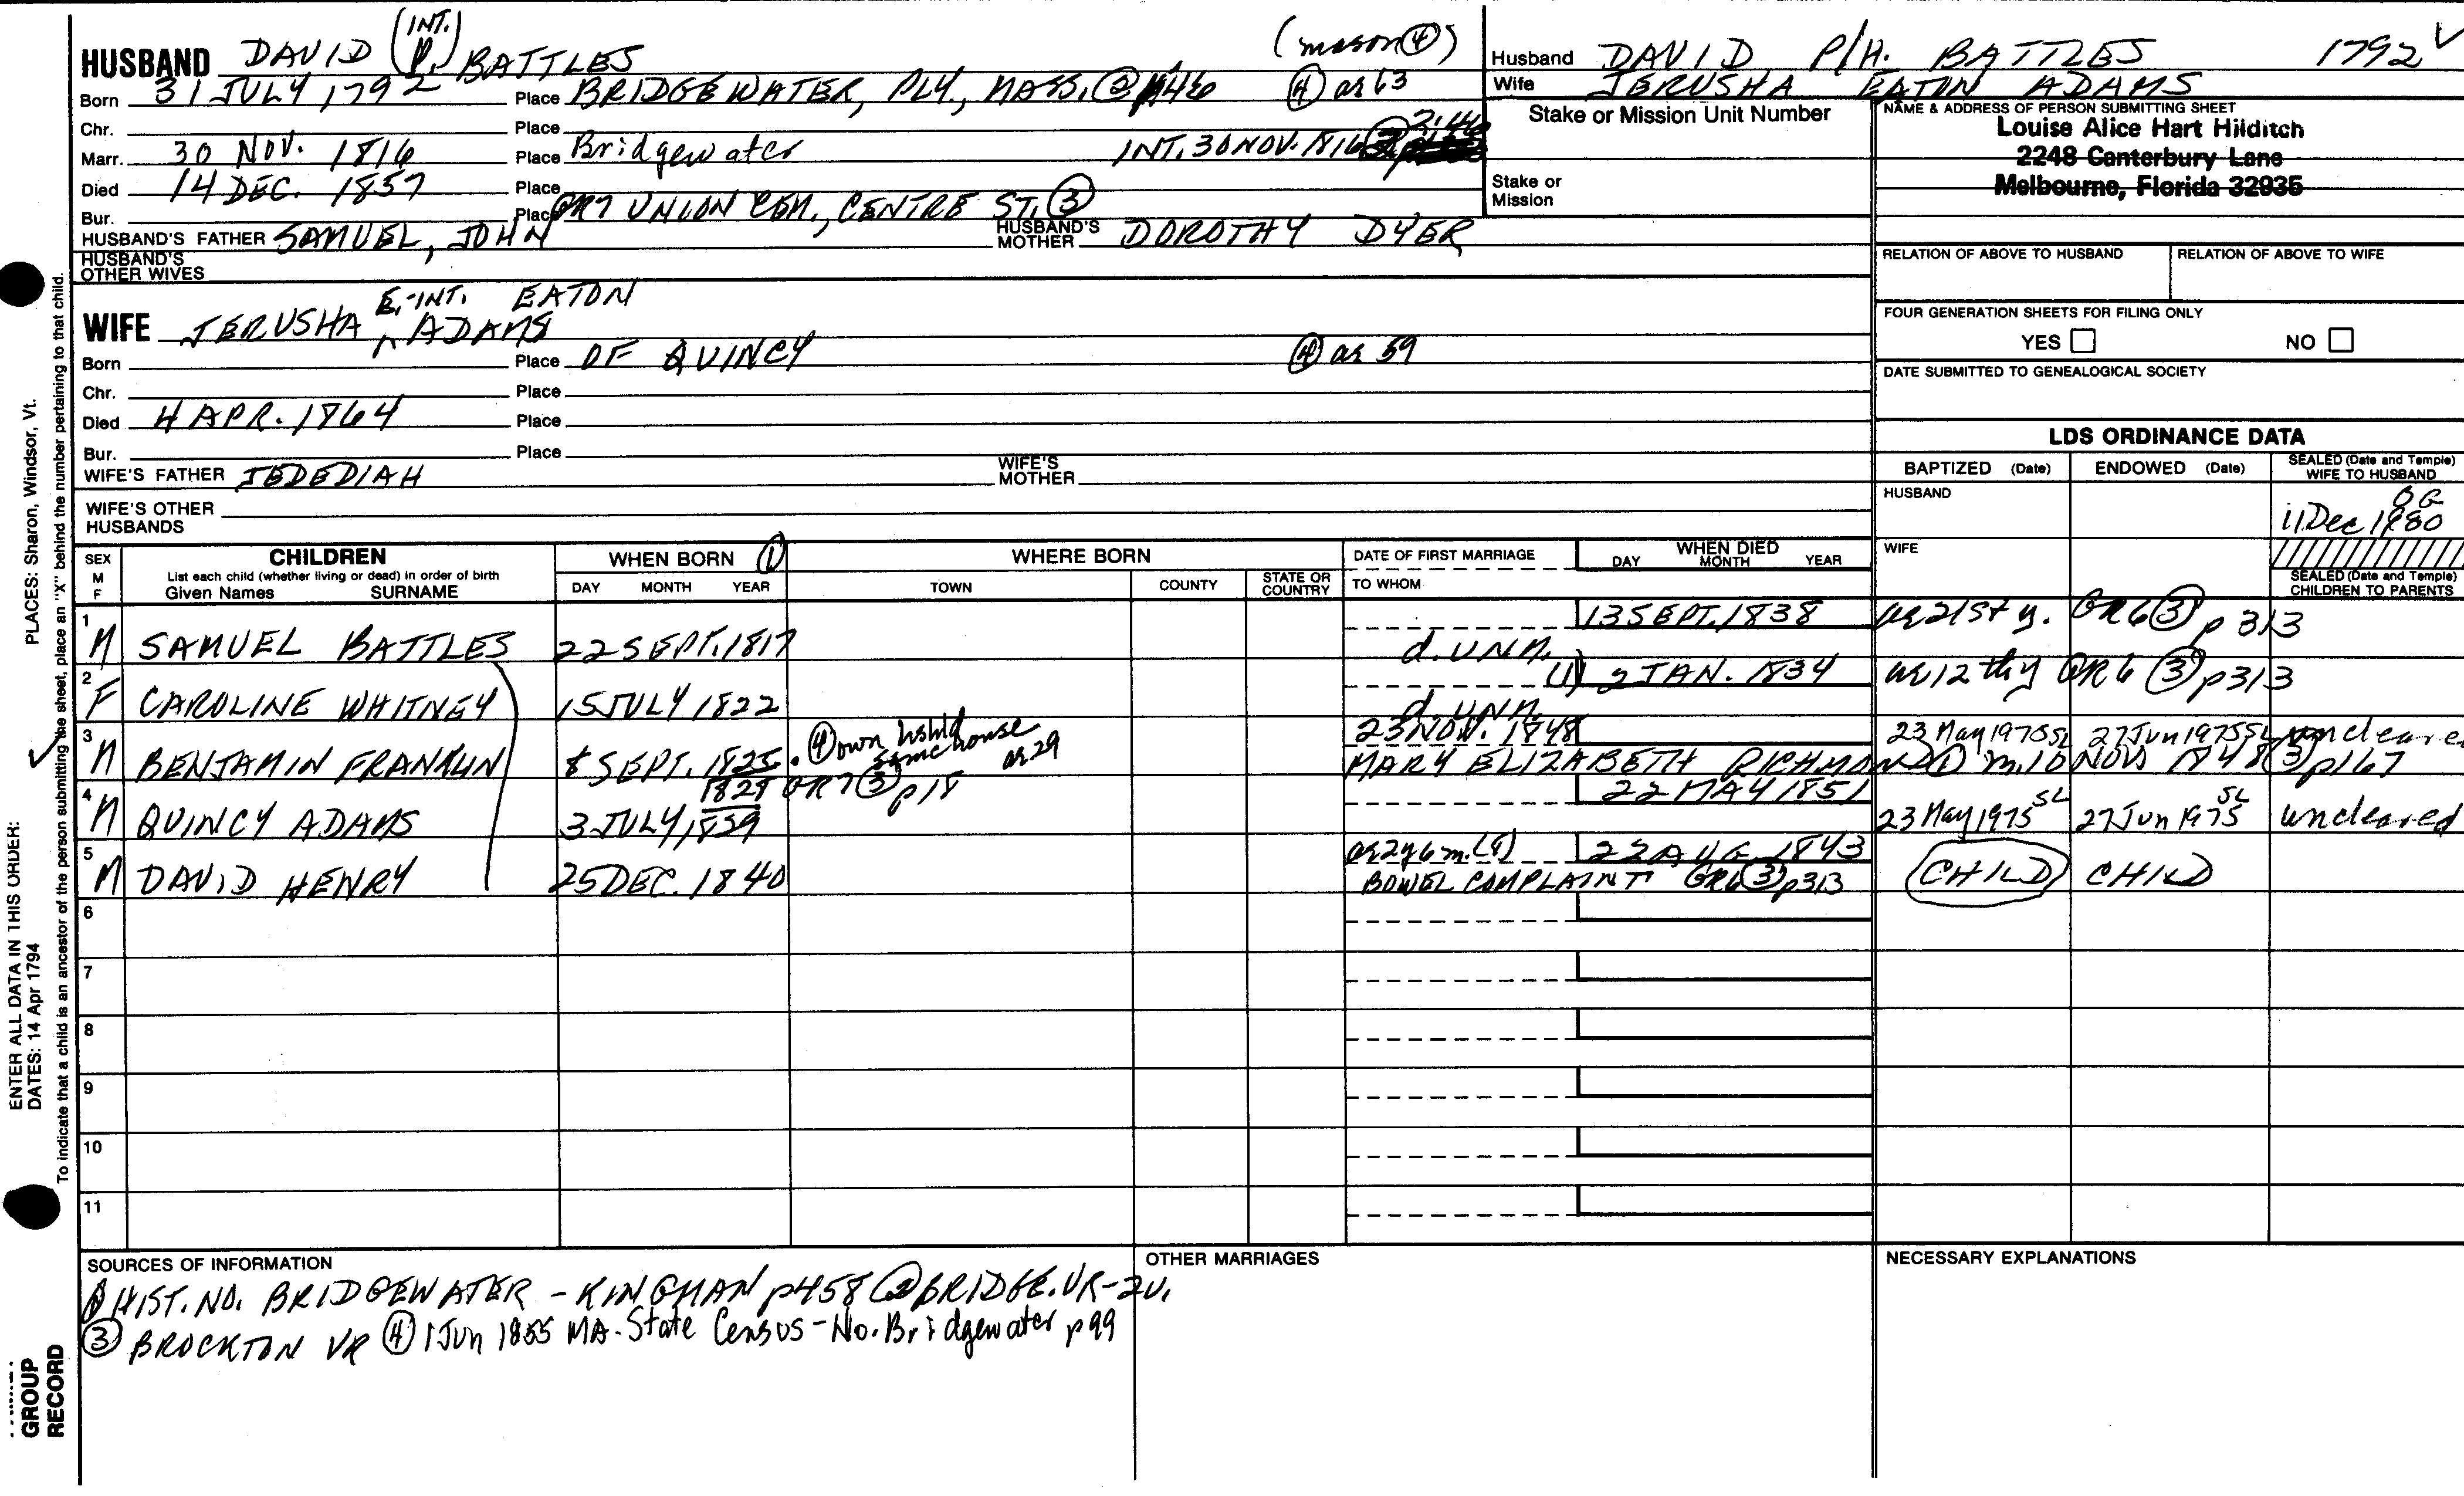 HUSBAND DAVID (INT.) P. BATTLES (mason ④)
Born 31 JULY 1792 Place BRIDGEWATER, PLY., MASS. ② p46 ④ ae 63
Chr. Place
Marr. 30 NOV. 1816 Place Bridgewater INT. 30 NOV. 1816 2:46
Died 14 DEC. 1857 Place
Bur. Place GR7 UNION CEM., CENTRE ST. ③
HUSBAND'S FATHER SAMUEL, JOHN HUSBAND'S MOTHER DOROTHY DYER
HUSBAND'S OTHER WIVES
Husband DAVID P/H. BATTLES 1792 ✓
Wife JERUSHA EATON ADAMS
Stake or Mission Unit Number
Stake or Mission
NAME & ADDRESS OF PERSON SUBMITTING SHEET
Louise Alice Hart Hilditch
2248 Canterbury Lane
Melbourne, Florida 32935
RELATION OF ABOVE TO HUSBAND RELATION OF ABOVE TO WIFE
FOUR GENERATION SHEETS FOR FILING ONLY
YES NO
DATE SUBMITTED TO GENEALOGICAL SOCIETY
E.-INT. EATON
WIFE JERUSHA ^ ADAMS
Born Place OF QUINCY ④ ae 59
Chr. Place
Died 4 APR. 1864 Place
Bur. Place
WIFE'S FATHER JEDEDIAH WIFE'S MOTHER
WIFE'S OTHER HUSBANDS
LDS ORDINANCE DATA
BAPTIZED (Date) ENDOWED (Date) SEALED (Date and Temple) WIFE TO HUSBAND
HUSBAND OG
11 Dec 1980
WIFE
SEALED (Date and Temple) CHILDREN TO PARENTS
SEX M F CHILDREN WHEN BORN ① WHERE BORN DATE OF FIRST MARRIAGE WHEN DIED
List each child (whether living or dead) in order of birth
Given Names SURNAME DAY MONTH YEAR TOWN COUNTY STATE OR COUNTRY TO WHOM DAY MONTH YEAR
1 M SAMUEL BATTLES 22 SEPT. 1817 d. UNM. 13 SEPT. 1838 ae 21st y. GR6 ③ p 313
2 F CAROLINE WHITNEY 15 JULY 1822 d. UNM. (1) 2 JAN. 1834 ae 12th y GR6 ③ p313
3 M BENJAMIN FRANKLIN 8 SEPT. 1825. ④ own hshld same house ae 29 23 NOV. 1848 23 May 1975 SL 27 Jun 1975 SL uncleared
MARY ELIZABETH RICHMOND ① m. 10 NOV 1848 ③ p167
4 M QUINCY ADAMS 3 JULY, 1839 1828 GR7 ③ p18 22 MAY 1851 23 May 1975 SL 27 Jun 1975 SL uncleared
5 M DAVID HENRY 25 DEC. 1840 ae 2y 6m. (1) 22 AUG. 1843 CHILD CHILD
BOWEL COMPLAINT GR6 ③ p313
6
7
8
9
10
11
SOURCES OF INFORMATION
① HIST. NO. BRIDGEWATER - KINGMAN p458 ② BRIDGE. VR-2V.
③ BROCKTON VR ④ 1 Jun 1855 MA. State Census - No. Bridgewater p99
OTHER MARRIAGES
NECESSARY EXPLANATIONS
ENTER ALL DATA IN THIS ORDER:
DATES: 14 Apr 1794 PLACES: Sharon, Windsor, Vt.
To indicate that a child is an ancestor of the person submitting the sheet, place an "X" behind the number pertaining to that child.
GROUP
RECORD